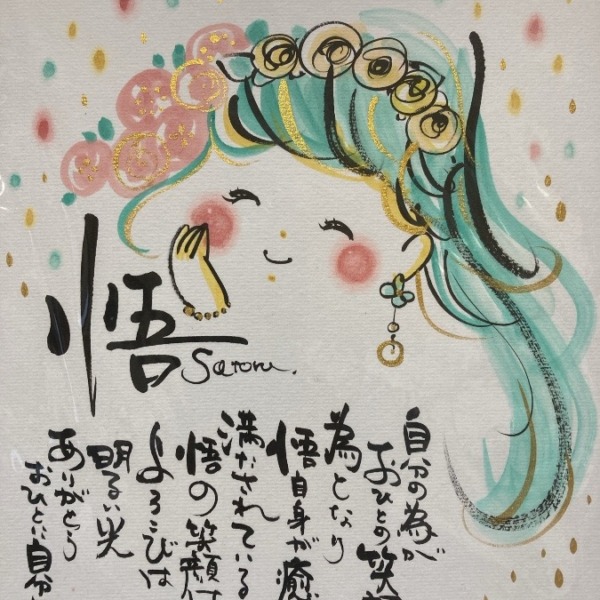 悟
Satoru.
自分の為が
おひとの笑
為となり
悟自身が癒
満たされている
悟の笑顔は
よろこびは
明るい光
ありがとう
おひとに自分